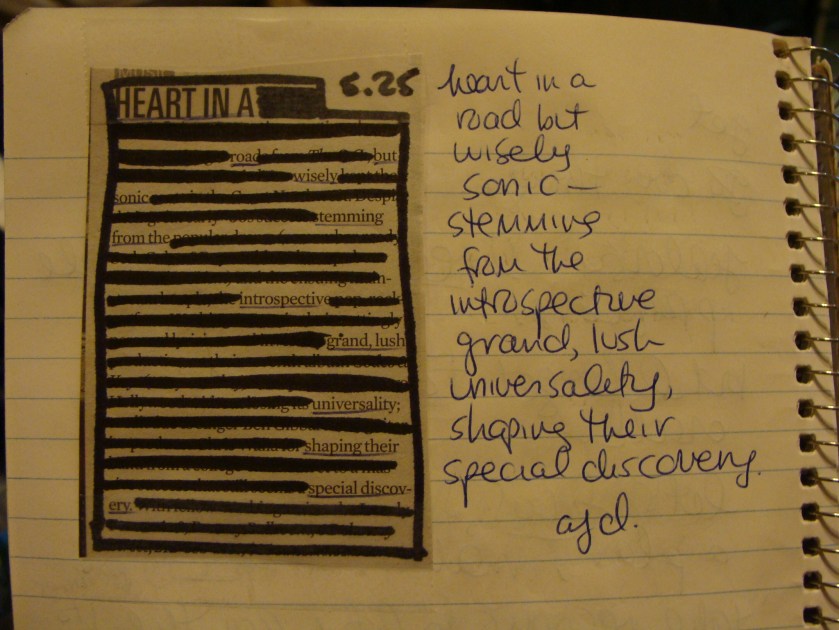 HEART IN A
5.25
road but
wisely
sonic
stemming
from the
introspective
grand, lush
universality;
shaping their
special discov-
ery.
heart in a
road but
wisely
sonic—
stemming
from the
introspective
grand, lush
universality,
shaping their
special discovery.
ajd.